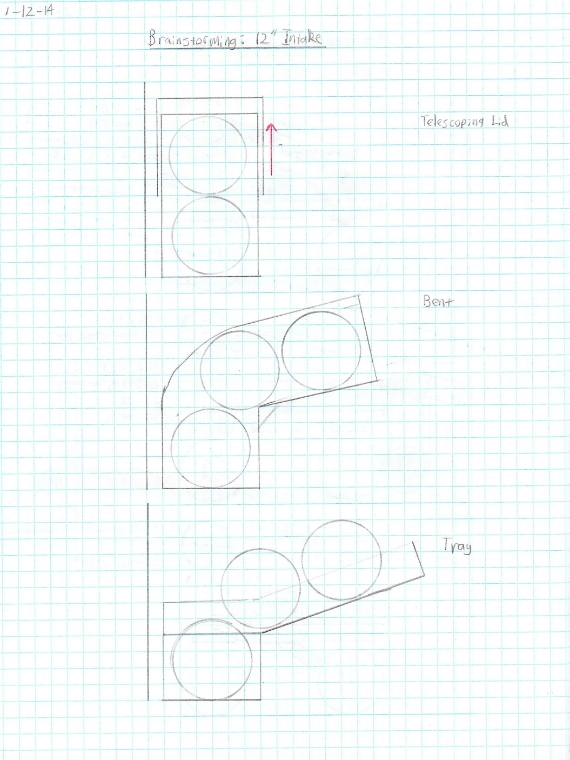 1-12-14
Brainstorming: 12" Intake
Telescoping Lid
Bent
Tray